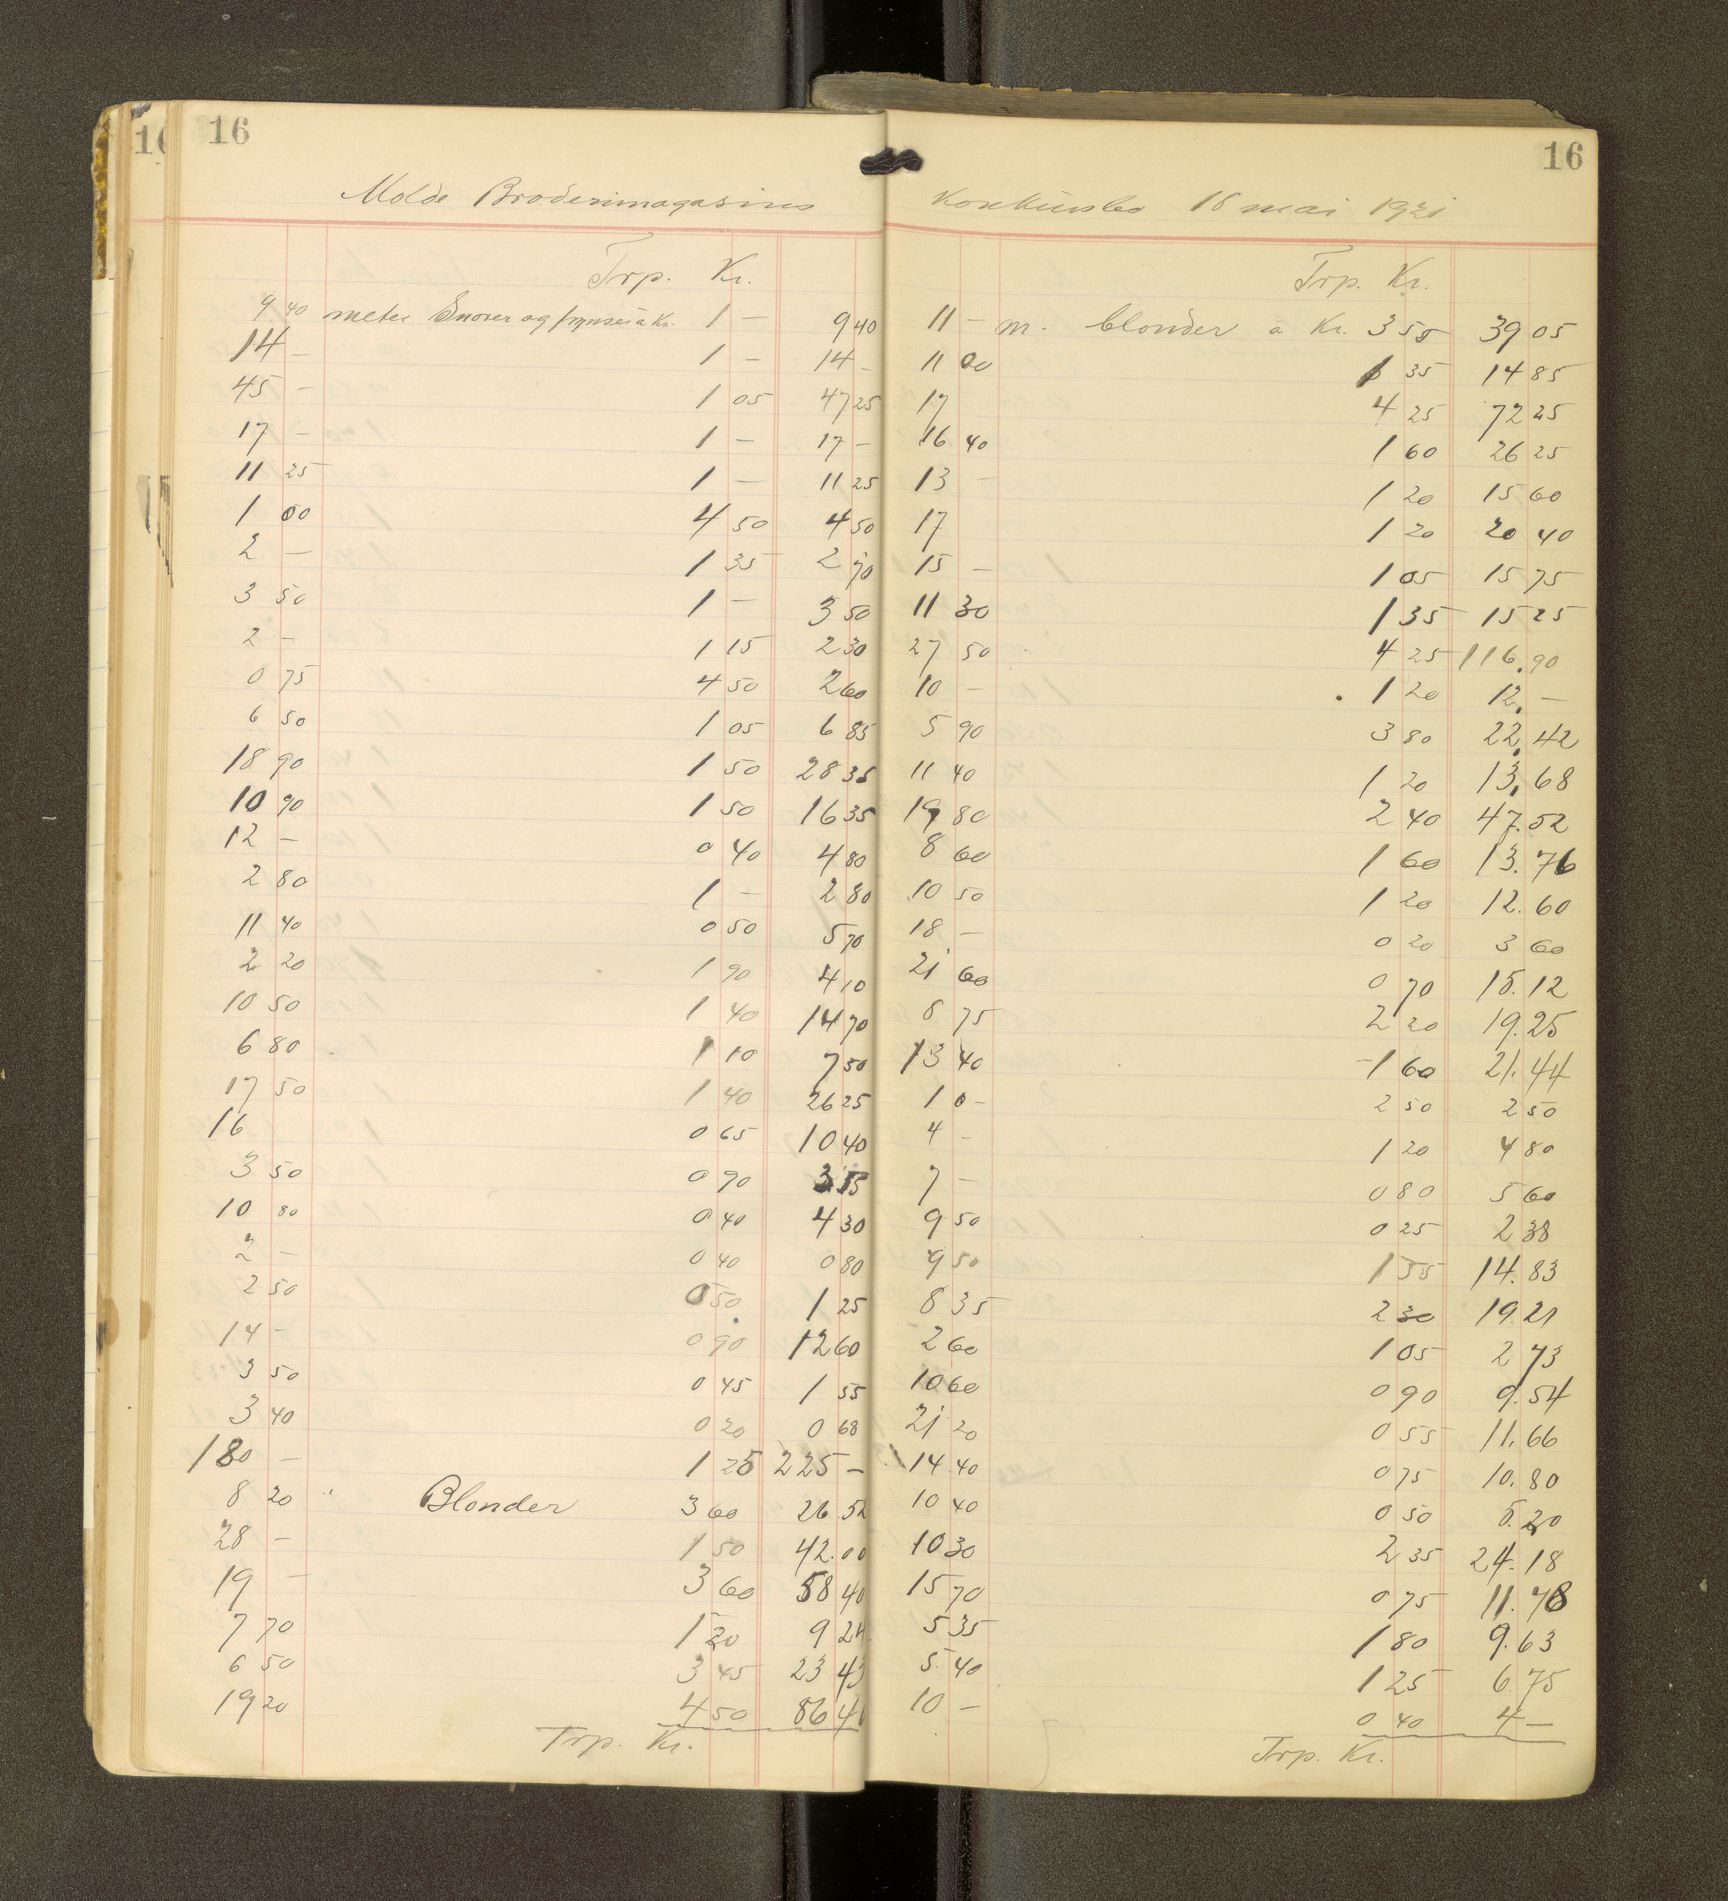 16
Molde Broderimagasins
Trp. Kr.
9 40 meter Snorer og frynser a Kr. 1 — 9 40
14 — 1 — 14 —
45 — 1 05 47 25
17 — 1 — 17 —
11 25 1 — 11 25
1 00 4 50 4 50
2 — 1 35 2 70
3 50 1 — 3 50
2 — 1 15 2 30
0 75 4 50 2 60
6 50 1 05 6 85
18 90 1 50 28 35
10 90 1 50 16 35
12 — 0 40 4 80
2 80 1 — 2 80
11 40 0 50 5 70
2 20 1 90 4 10
10 50 1 40 14 70
6 80 1 10 7 50
17 50 1 40 26 25
16 0 65 10 40
3 50 0 90 3 15
10 80 0 40 4 30
2 — 0 40 0 80
2 50 0 50 1 25
14 — 0 90 12 60
3 50 0 45 1 55
3 40 0 20 0 68
180 — 1 25 225 —
8 20 " Blonder 3 60 26 52
28 — 1 50 42.00
19 — 3 60 58 40
7 70 1 20 9 24
6 50 3 45 23 43
19 20 4 50 86 4
Trp. Kr.
16
Konkursbo 18 mai 1921
Trp. Kr.
11 — m. blonder a Kr. 3 55 39 05
11 00 1 35 14 85
17 4 25 72 25
16 40 1 60 26 25
13 — 1 20 15 60
17 1 20 20 40
15 — 1 05 15 75
11 30 1 35 15 25
27 50 4 25 116.90
10 — 1 20 12. —
5 90 3 80 22.42
11 40 1 20 13.68
19 80 2 40 47.52
8 60 1 60 13.76
10 50 1 20 12.60
18 — 0 20 3 60
21 60 0 70 15.12
8 75 2 20 19.25
13 40 1 60 21.44
1 0 — 2 50 2 50
4 — 1 20 4 80
7 — 0 80 5 60
9 50 0 25 2 38
9 50 1 55 14.83
8 35 2 30 19.21
2 60 1 05 2 73
10 60 0 90 9.54
21 20 0 55 11.66
14.40 0 75 10.80
10 40 0 50 5.20
10 30 2 35 24.18
15 70 0 75 11.78
5 35 1 80 9.63
5.40 1 25 6.75
10 — 0 40 4 —
Trp. Kr.